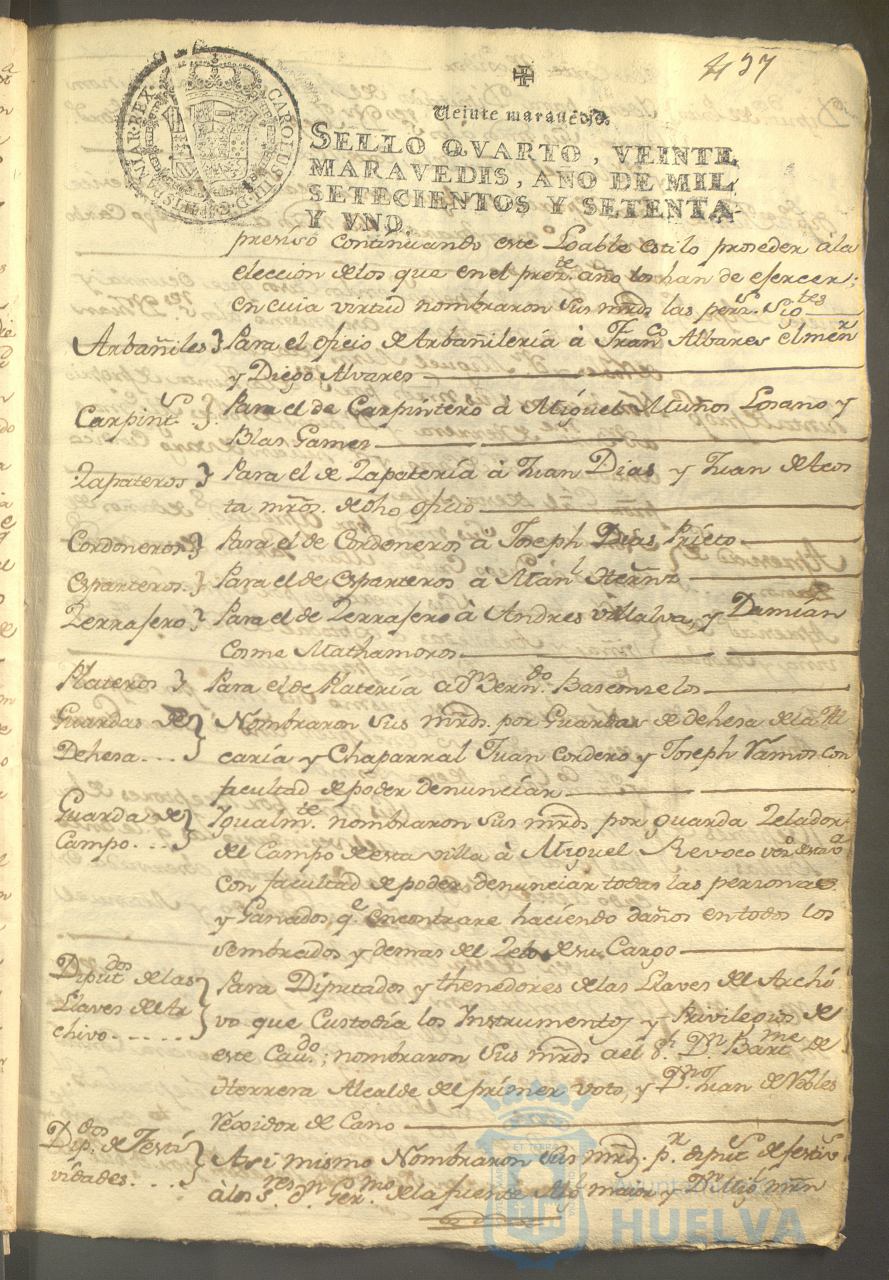 CAROLUS III D G HISPANIAR REX
437
Veinte maravedis.
SELLO QVARTO, VEINTE
MARAVEDIS, AÑO DE MIL
SETECIENTOS Y SETENTA
Y VNO.
presiso continuando este Loable estilo proseder à la
eleccion de los que en el prente. año los han de eserser;
en cuia virtud nombraron sus mrds las pers. sigtes
Arbañiles } Para el oficio de Arbañileria à Franco Albares el menr
y Diego Alvares
Carpints. } Para el de Carpintero à Miguel Muños Losano y
Blas Gamez
Zapateros } Para el de Zapatería à Juan Dias y Juan de Acos
ta mros. de dho oficio
Cordoneros } Para el de Cordoneros à Joseph Dias Prieto
Esparteros. } Para el de Esparteros à Manl Hernz
Zerrasero } Para el de Zerrasero à Andres villalva, y Damian
Cosme Mathamoros
Plateros } Para el de Plateria a Dn Berndo. Basconselos
Guardas de } Nombraron sus mrds. por Guardas de dehesa de la Al
Dehesa... } caria y Chaparral Juan Cordero y Joseph Ramos con
facultad de poder denunciar
Guarda de } Igualmte. nombraron sus mrds por guarda Zelador
Campo.... } del Campo de esta villa à Miguel Revoco vo. de esta va
con facultad de poder denunciar todas las personas
y Ganados, qe encontrare haciendo daños en todos los
sembrados y demas del Zelo de su Cargo
Diputdos de las } Para Diputados y thenedores de las Llaves del Archi
Llaves del Ar } vo que Custodía los Instrumentos y Privilegios de
chivo..... } este Cavdo.; nombraron sus mrds a el Sr. Dn Barme de
Herrera Alcalde de primer voto, y Dn Juan de Robles
Rexidor de Cano
Dipdos. de Festi } Asi mismo Nombraron sus mrds. pr. diputs de festivs
vidades.... } à los Sres Dn Germo de la fuente Algl maior y Dn Migl mrn
Ayuntamiento
HUELVA